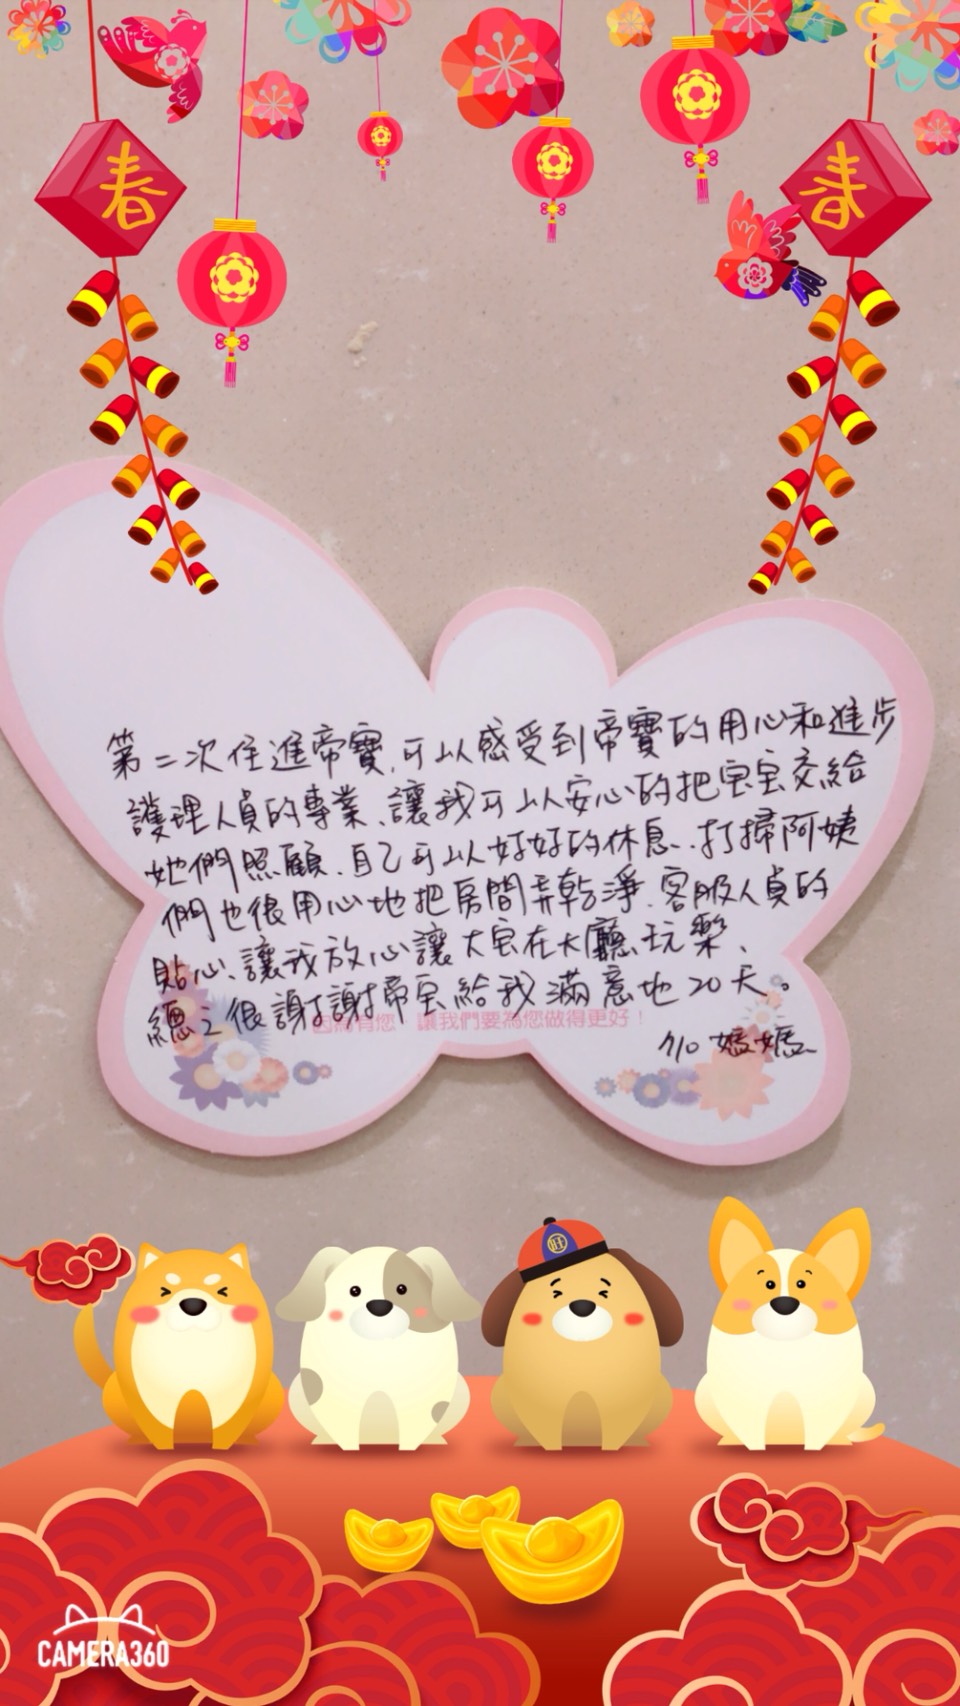 春
春
第二次住進帝寶,可以感受到帝寶的用心和進步
護理人員的專業、讓我可以安心的把宝宝交給
她們照顧.自己可以好好的休息..打掃阿姨
們也很用心地把房間弄乾淨.客服人員的
貼心、讓我放心讓大宝在大廳玩樂、
總之很謝謝帝宝給我滿意地20天。
因為有您,讓我們要為您做得更好!
710 媽媽
旺
CAMERA360